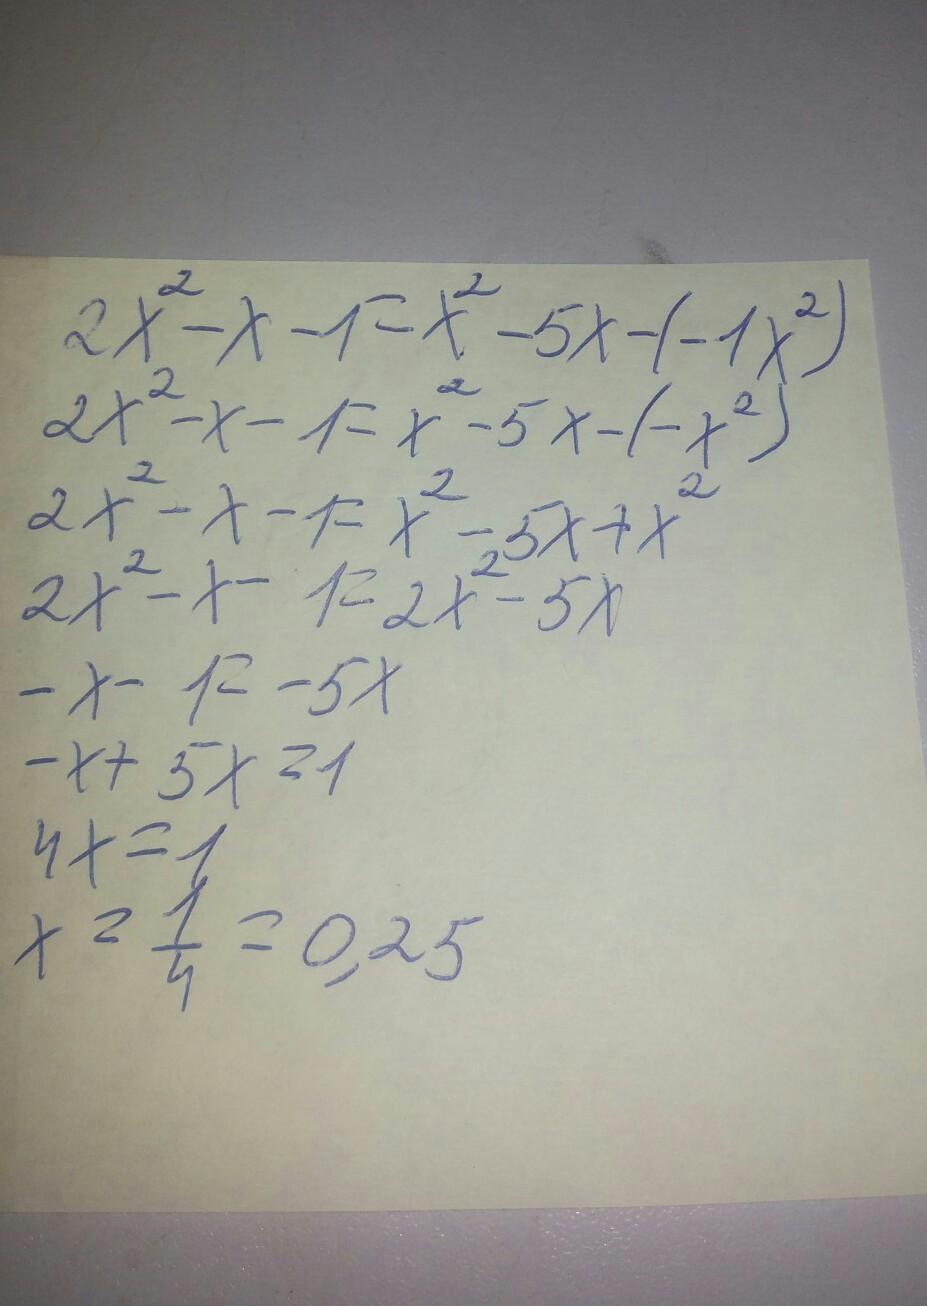 2x² - x - 1 = x² - 5x - (-1x²)
2x² - x - 1 = x² - 5x - (-x²)
2x² - x - 1 = x² - 5x + x²
2x² - x - 1 = 2x² - 5x
-x - 1 = -5x
-x + 5x = 1
4x = 1
x = 1/4 = 0,25